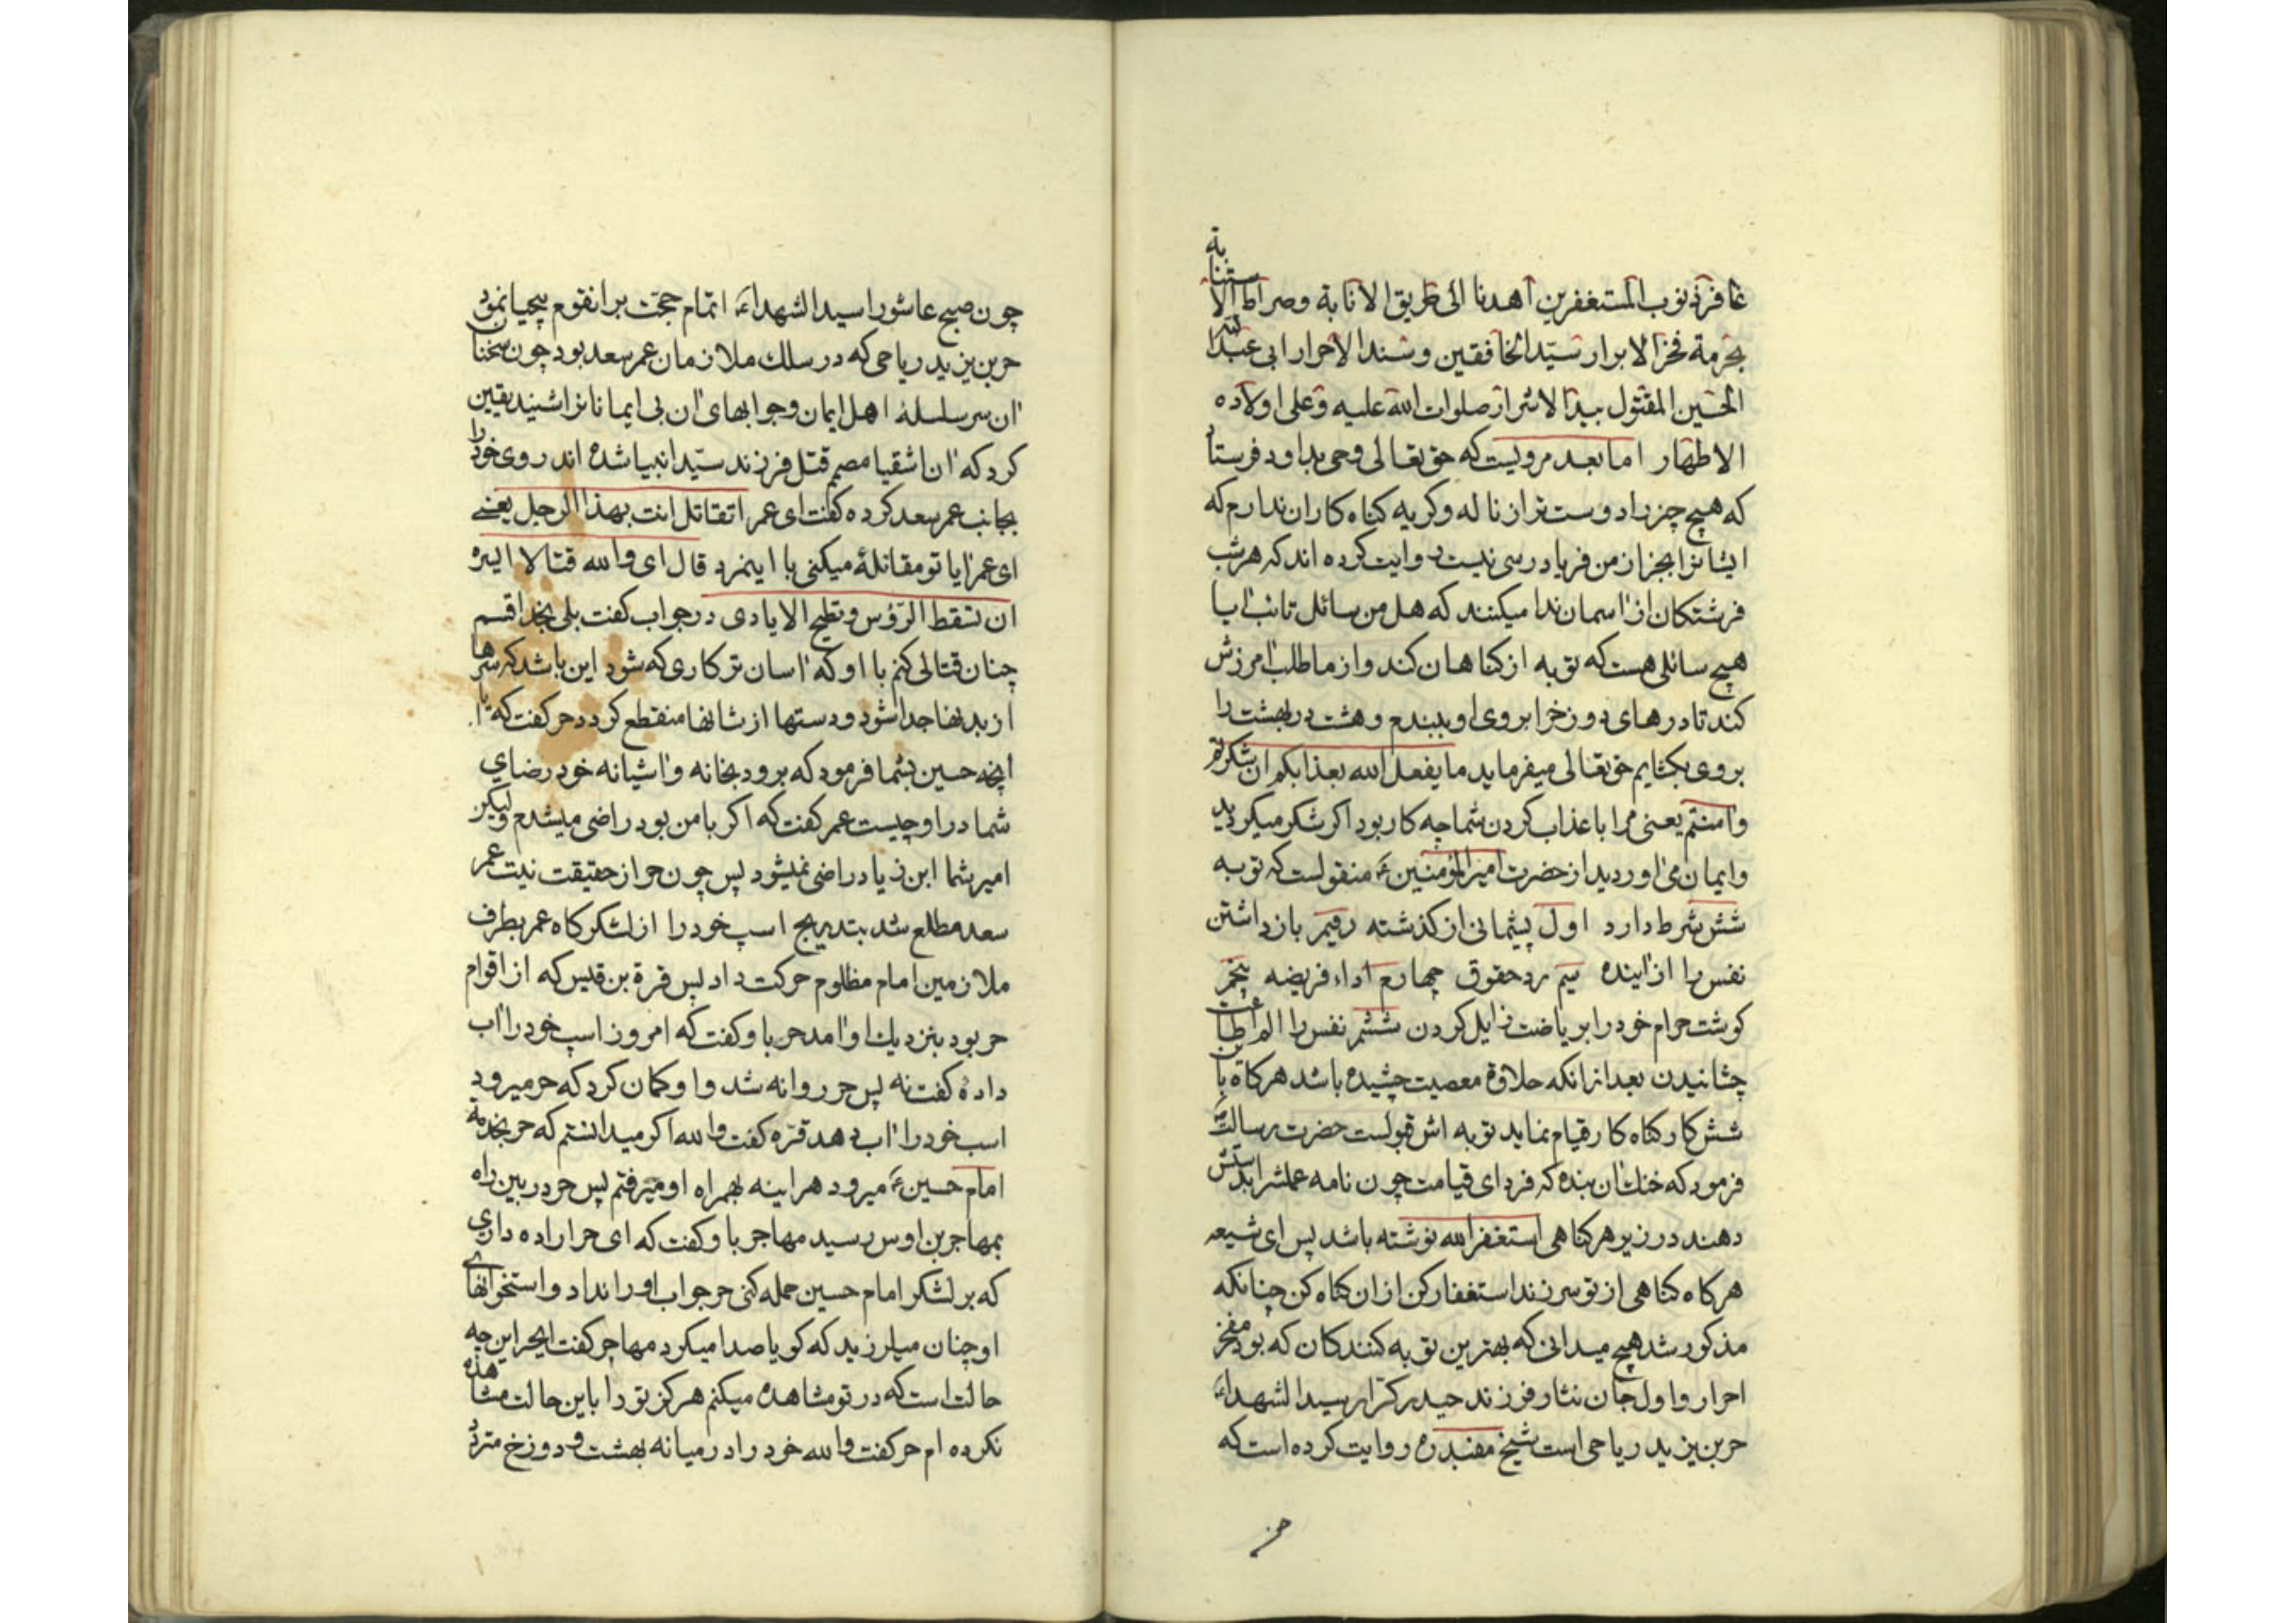 غافر ذنوب المستغفرین اهدنا الی طریق الانابة وصراط الاستنابة
بحرمة فخر الابرار سیّد الخافقین وسند الاحرار ابی عبد الله
الحسین المقتول بید الاشرار صلوات الله علیه وعلی اولاده
الاطهار اما بعد مرویست که حق تعالی وحی بداود فرستاد
که هیچ چیز را دوست تر از ناله وکریه کناه کاران ندارم که
ایشانرا بجز از من فریاد رسی نیست روایت کرده اند که هر شب
فرشتکان از آسمان ندا میکنند که هل من سائل تائب آیا
هیچ سائلی هست که توبه از کناهان کند واز ما طلب آمرزش
کند تا درهای دوزخرا بروی او ببندم وهشت در بهشت را
بروی بکشایم حق تعالی میفرماید ما یفعل الله بعذابکم ان شکرتم
وآمنتم یعنی مرا با عذاب کردن شما چه کار بود اکر شکر میکردید
وایمان می آوردید از حضرت امیر المؤمنین ع منقولست که توبه
شش شرط دارد اول پشیمانی از کذشته دویم باز داشتن
نفس را از آینده سیم رد حقوق چهارم اداء فریضه پنجم
کوشت حرام خود را بریاضت زایل کردن ششم نفس را الم طاعت
چشانیدن بعد از انکه حلاوة معصیت چشیده باشد هرکاه باین
شش کار کناه کار قیام نماید توبه اش قبولست حضرت رسالت
فرمود که خنک آن بنده که فردای قیامت چون نامه عملش را بدستش
دهند در زیر هر کناهی استغفر الله نوشته باشد پس ای شیعه
هرکاه کناهی از تو سر زند استغفار کن از ان کناه کن چنانکه
مذکور شد هیچ میدانی که بهترین توبه کنندکان که بود مفخر
احرار واول جان نثار فرزند حیدر کرّار سید الشهداء
حر بن یزید ریاحی است شیخ مفید ره روایت کرده است که
چون صبح عاشورا سید الشهداء اتمام حجّت بر انقوم بیحیا نمود
حر بن یزید ریاحی که در سلک ملازمان عمر سعد بود چون سخنان
آن سر سلسلۀ اهل ایمان وجوابهای آن بی ایمانانرا شنید یقین
کرد که آن اشقیا مصمم قتل فرزند سیّد انبیا شده اند روی خود را
بجانب عمر سعد کرده کفت ای عمر اتقاتل انت بهذا الرجل یعنی
ای عمر آیا تو مقاتلۀ میکنی با اینمرد قال ای والله قتالا ایسره
ان تسقط الرّؤس وتطیح الایادی در جواب کفت بلی بخدا قسم
چنان قتالی کنم با او که آسان تر کاری که شود این باشد که سرها
از بدنها جدا شود ودستها از شانها منقطع کردد حر کفت که آیا
آنچه حسین بشما فرمود که برود بخانه وآشیانه خود رضای
شما در او چیست عمر کفت که اکر با من بود راضی میشدم ولیکن
امیر شما ابن زیاد راضی نمیشود پس چون حر از حقیقت نیت عمر
سعد مطلع شد بتدریج اسب خود را از لشکرکاه عمر بطرف
ملازمین امام مظلوم حرکت داد پس قرة بن قیس که از اقوام
حر بود بنزدیك او آمد حر با و کفت که امروز اسب خود را آب
داده کفت نه پس حر روانه شد و او کمان کرد که حر میرود
اسب خود را آب دهد قرّه کفت والله اکر میدانستم که حر بخدمة
امام حسین ع میرود هراینه بهمراه او میرفتم پس حر در بین راه
بمهاجر بن اوس رسید مهاجر با و کفت که ای حر اراده داری
که بر لشکر امام حسین حمله کنی حر جواب او را نداد واستخوانهای
او چنان میلرزید که کویا صدا میکرد مهاجر کفت ایحر این چه
حالت است که در تو مشاهده میکنم هرکز تو را باین حالت مشاهده
نکرده ام حر کفت والله خود را در میانه بهشت ودوزخ متردد